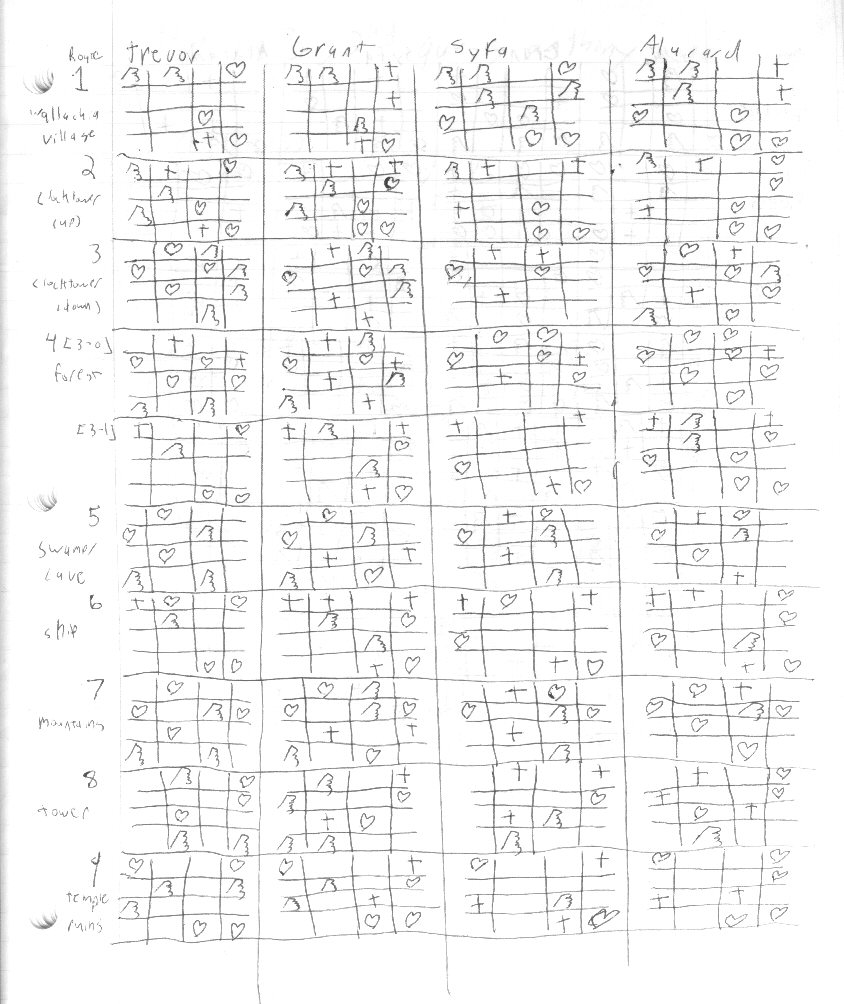 Route Trevor Grant Syfa Alucard
1
Wallachia
village
2
clocktower
(up)
3
clocktower
(down)
4 [3-0]
forest
[3-1]
5
swamp/
cave
6
ship
7
mountains
8
tower
9
temple
ruins